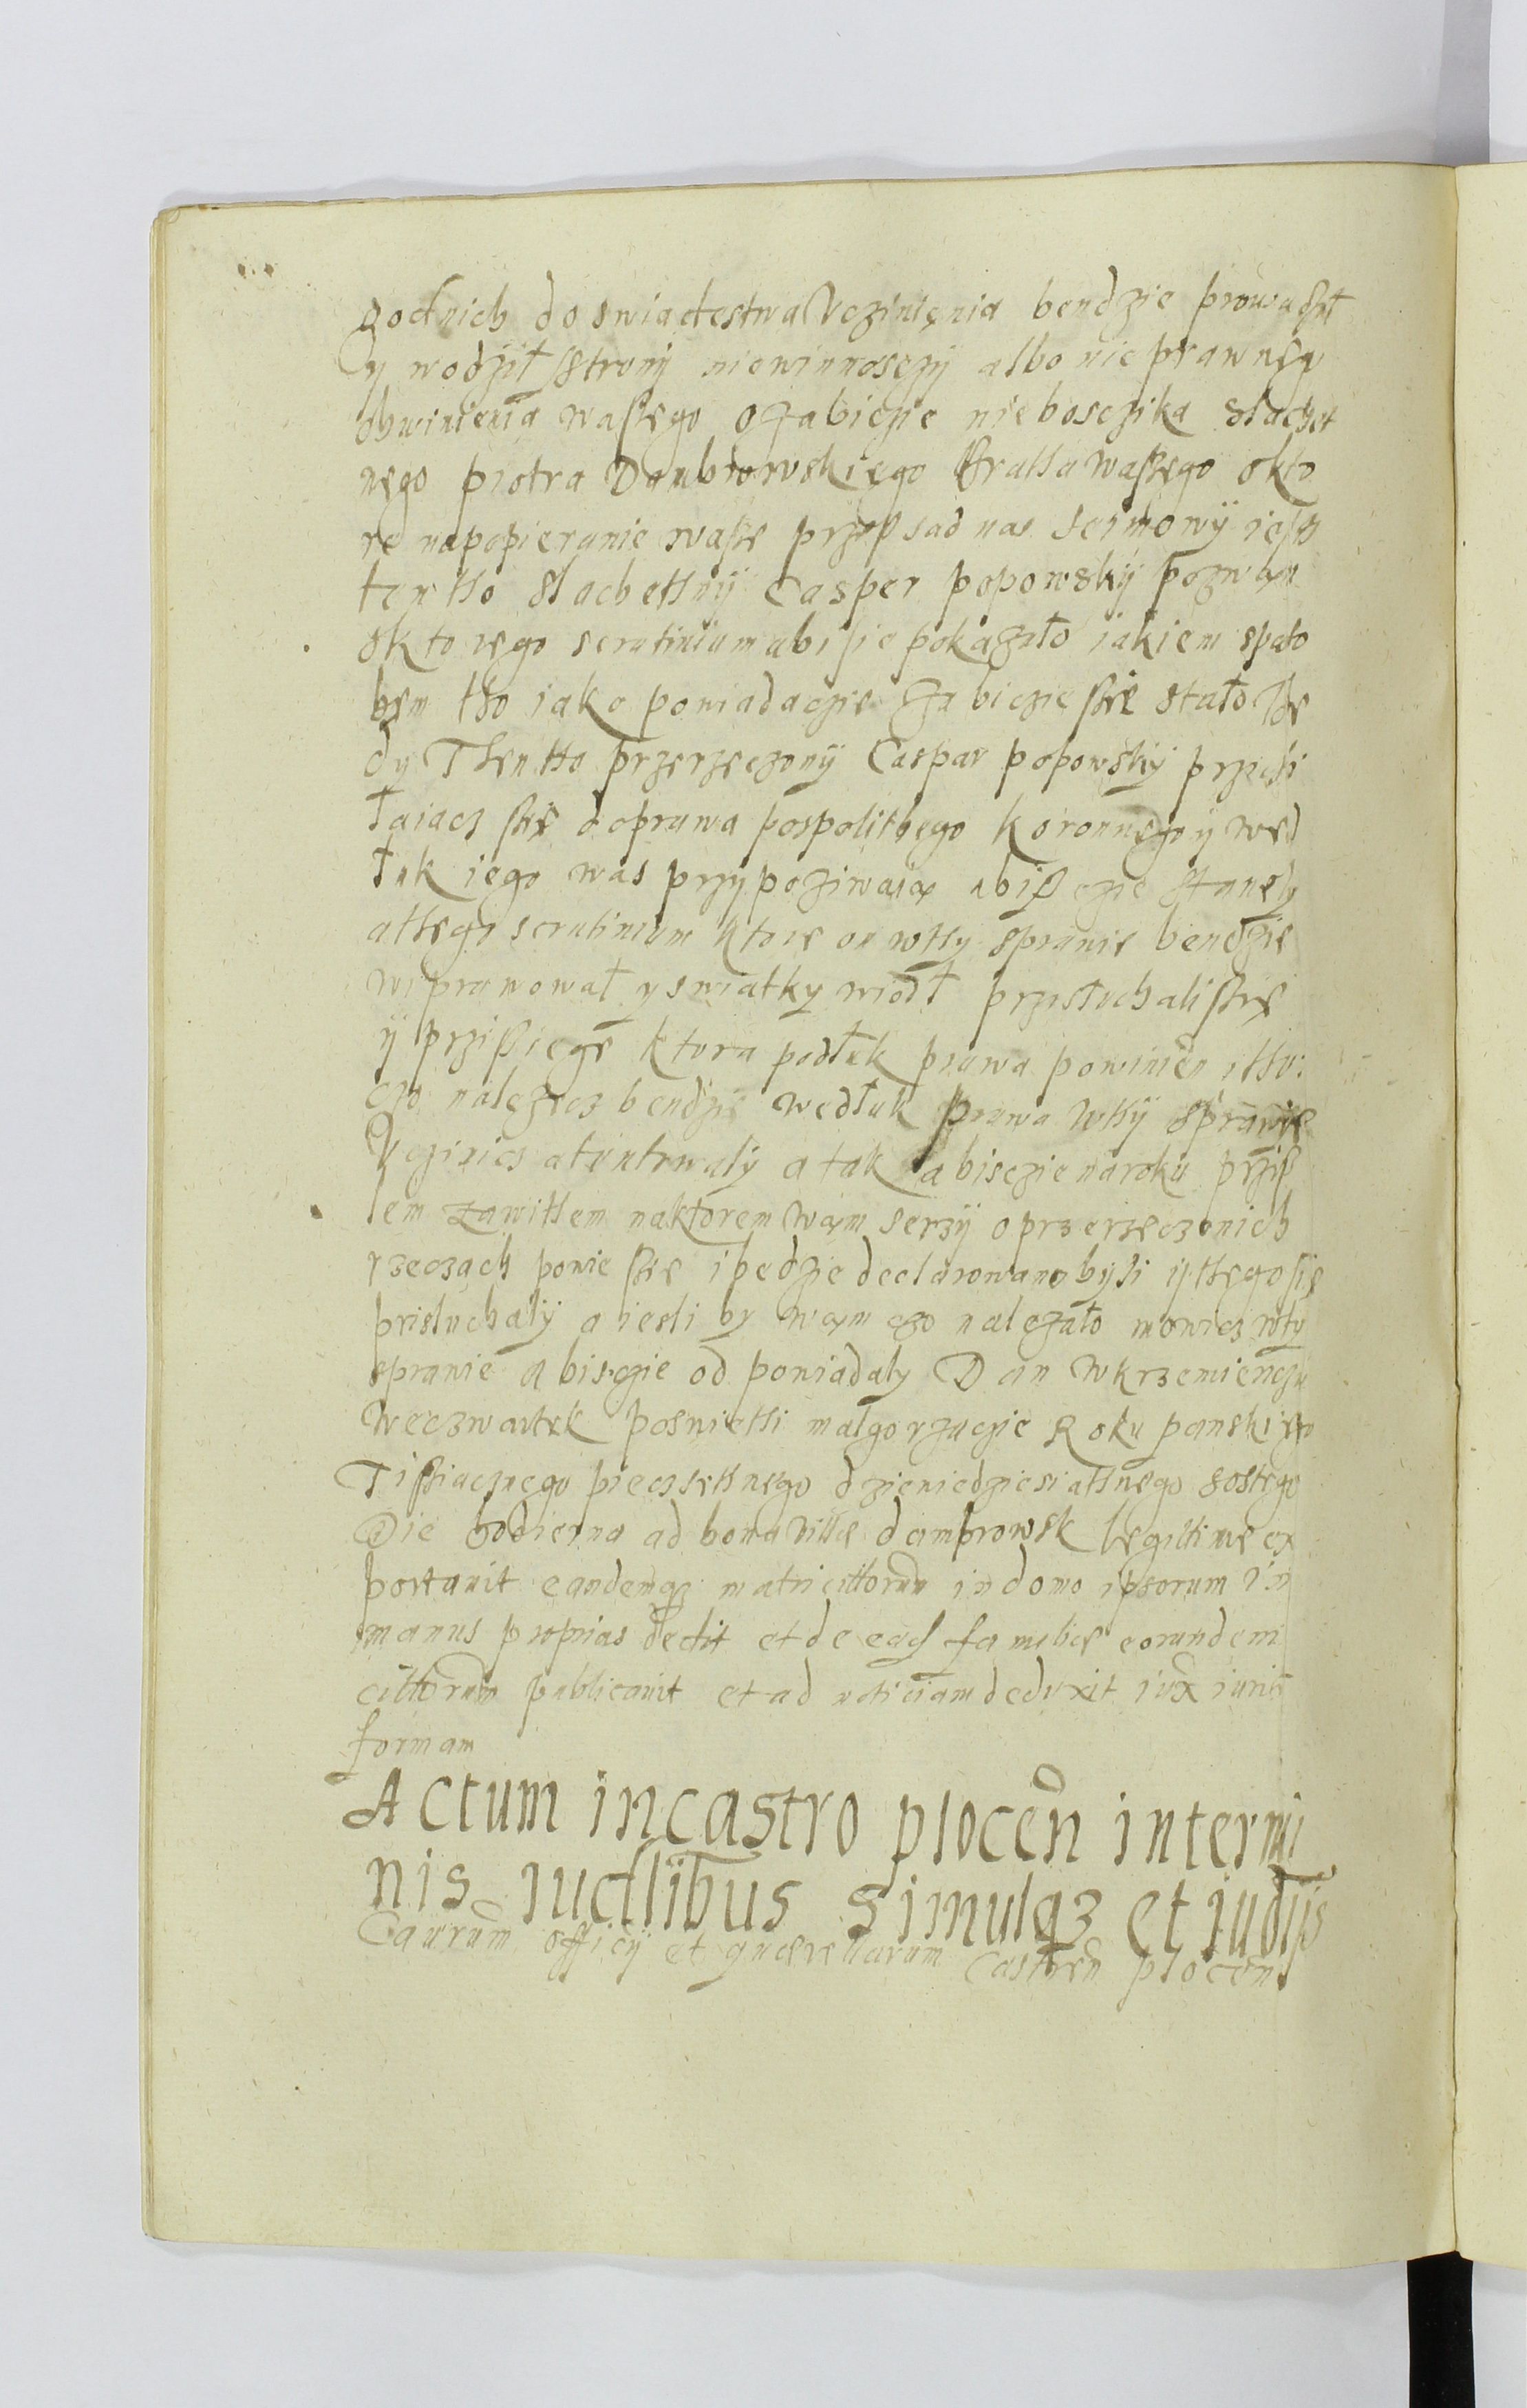 godnich do swiadestwa Vczinięnia bendzie prowadził
y wodził strony niewinnosczÿ albo nieprawnęy
obwinienia waszego o zabiczie nieboszika slachet
nęgo piotra Dambrowskięgo Bratha waszego okto
re napopieranie wasze przed sad nas seimowÿ iest
tentho slachethnÿ Casper popowskÿ pozwan
oktorego scrutinium abi sie pokazało iakiem spąo
bem tho iako powiadaczie zabiczie sie stało The
dy Thentho przerzeczonÿ Caspar popowskÿ przichi
laiacz sie doprawa pospolithego koronnego ÿ wed
łuk iego was przypoziwaia abiscie stanely
athego scrutinium ktore on wthy sprawie bendzie
wiprawował y swiatky wiodł przisłuchali sie
ÿ przisiege ktora podłuk prawa powinien ithu:
czo należecz bendzie wedłuk prawa wthÿ sprawie
Vczinicz atentowalÿ a tak abisczie naroku przisz
lem zawithem naktorem wam serzÿ o przerzeczonich
rzeczach powie sie i bedzie declarowano byli ythego sie
prisluchalÿ a iesli by wam czo należało mowicz wtÿ
sprawie abisczie odpowiadaly Dan wkrzemienczu
weczwartek poswiethi malgorzaczie Roku panskiego
Tissiacznego pieczsethnego dziewiedziesiathnego sostego
Die hodierna ad bona villae dambrowsk legittime ex
portavit eandemqz matri cittorum in domo ipsorum in
manus proprias dedit et de ead familiae eorundem
cittorum publicavit et ad noticiam deduxit iux iuris
formam
Actum in castro plocen in termi
nis iudlibus simulqz et iudijs
Caurum officÿ et quaerellarum Castren plocen